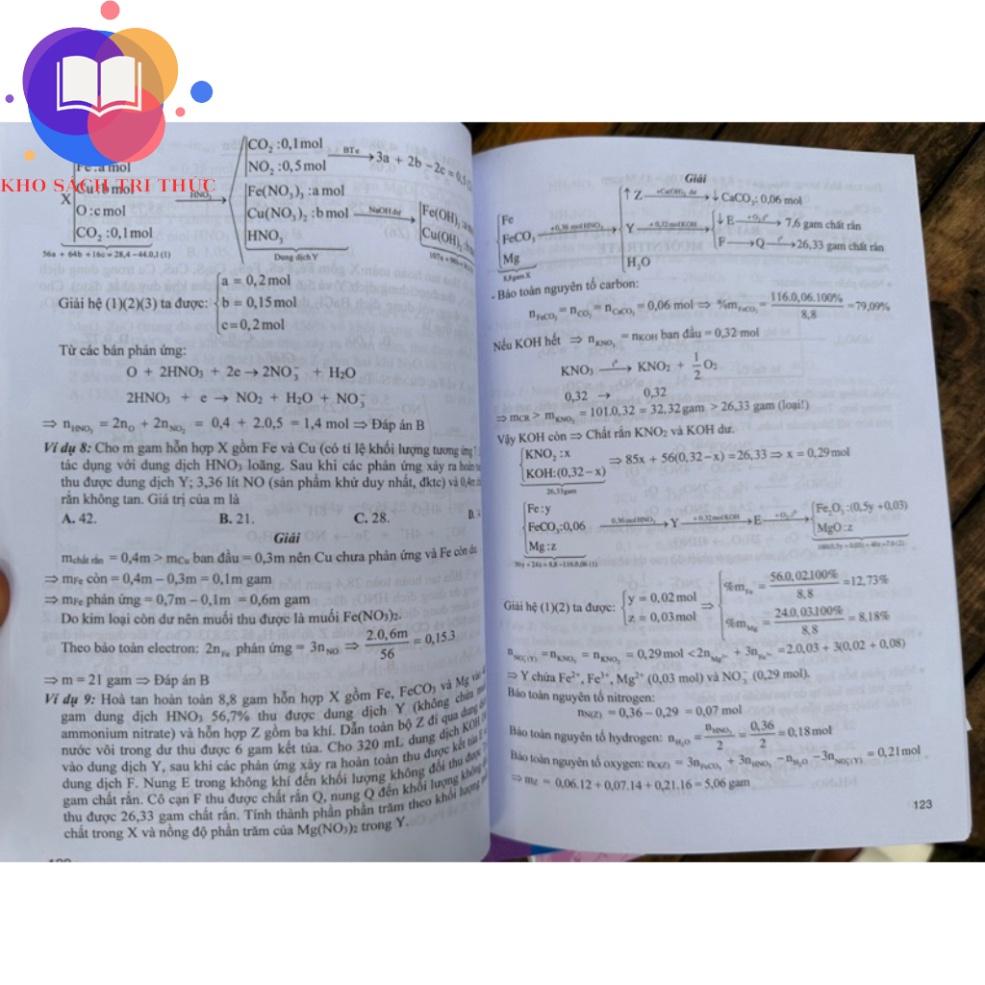 KHO SÁCH TRI THỨC
CO₂ :0,1 mol
NO₂ :0,5 mol
BTe → 3a + 2b - 2c = 0,5
X
Fe :a mol
Cu :b mol
O :c mol
CO₂ :0,1 mol
HNO₃
Fe(NO₃)₃ :a mol
Cu(NO₃)₂ :b mol
HNO₃
Dung dịch Y
NaOH dư
Fe(OH)₃
Cu(OH)₂
56a + 64b + 16c = 28,4-44.0,1 (1)
Giải hệ (1)(2)(3) ta được:
a = 0,2 mol
b = 0,15 mol
c = 0,2 mol
Từ các bán phản ứng:
O + 2HNO₃ + 2e → 2NO₃⁻ + H₂O
2HNO₃ + e → NO₂ + H₂O + NO₃⁻
⇒ nHNO₃ = 2nO + 2nNO₂ = 0,4 + 2.0,5 = 1,4 mol ⇒ Đáp án B
Ví dụ 8: Cho m gam hỗn hợp X gồm Fe và Cu (có tỉ lệ khối lượng tương ứng
tác dụng với dung dịch HNO₃ loãng. Sau khi các phản ứng xảy ra hoàn
thu được dung dịch Y; 3,36 lít NO (sản phẩm khử duy nhất, đktc) và 0,4m
rắn không tan. Giá trị của m là
A. 42. B. 21. C. 28. D.
Giải
mchất rắn = 0,4m > mCu ban đầu = 0,3m nên Cu chưa phản ứng và Fe còn dư
⇒ mFe còn = 0,4m – 0,3m = 0,1m gam
⇒ mFe phản ứng = 0,7m – 0,1m = 0,6m gam
Do kim loại còn dư nên muối thu được là muối Fe(NO₃)₂.
Theo bảo toàn electron: 2nFe phản ứng = 3nNO ⇒ 2.0,6m/56 = 0,15.3
⇒ m = 21 gam ⇒ Đáp án B
Ví dụ 9: Hoà tan hoàn toàn 8,8 gam hỗn hợp X gồm Fe, FeCO₃ và Mg vào
gam dung dịch HNO₃ 56,7% thu được dung dịch Y (không chứa
ammonium nitrate) và hỗn hợp Z gồm ba khí. Dẫn toàn bộ Z đi qua dung
nước vôi trong dư thu được 6 gam kết tủa. Cho 320 mL dung dịch KOH
vào dung dịch Y, sau khi các phản ứng xảy ra hoàn toàn thu được kết tủa
dung dịch F. Nung E trong không khí đến khối lượng không đổi thu được
gam chất rắn. Cô cạn F thu được chất rắn Q, nung Q đến khối lượng không
thu được 26,33 gam chất rắn. Tính thành phần phần trăm theo khối lượng
chất trong X và nồng độ phần trăm của Mg(NO₃)₂ trong Y.
Giải
Fe
FeCO₃
Mg
8,8 gam X
+0,36 mol HNO₃
↑ Z +Ca(OH)₂ dư → ↓ CaCO₃: 0,06 mol
Y +0,32 mol KOH
↓ E +O₂,t° → 7,6 gam chất rắn
F → Q t° → 26,33 gam chất rắn
H₂O
- Bảo toàn nguyên tố carbon:
nFeCO₃ = nCO₂ = nCaCO₃ = 0,06 mol ⇒ %mFeCO₃ = 116.0,06.100%/8,8 = 79,09%
Nếu KOH hết ⇒ nKNO₃ = nKOH ban đầu = 0,32 mol
KNO₃ t° → KNO₂ + 1/2 O₂
0,32 → 0,32
⇒ mCR > mKNO₂ = 101.0,32 = 32,32 gam > 26,33 gam (loại!)
Vậy KOH còn ⇒ Chất rắn KNO₂ và KOH dư.
KNO₂ :x
KOH: (0,32 – x)
26,33 gam
⇒ 85x + 56(0,32 – x) = 26,33 ⇒ x = 0,29 mol
Fe :y
FeCO₃ :0,06
Mg :z
+0,36 mol HNO₃ → Y +0,32 mol KOH → E +O₂,t° →
Fe₂O₃ :(0,5y + 0,03)
MgO :z
Giải hệ (1)(2) ta được:
y = 0,02 mol
z = 0,03 mol
⇒
%mFe = 56.0,02.100%/8,8 = 12,73%
%mMg = 24.0,03.100%/8,8 = 8,18%
nNO₃⁻(Y) = nKNO₃ = nKNO₂ = 0,29 mol < 2nMg²⁺ + 3nFe³⁺ = 2.0,03 + 3(0,02 + 0,08)
⇒ Y chứa Fe²⁺, Fe³⁺, Mg²⁺ (0,03 mol) và NO₃⁻ (0,29 mol).
Bảo toàn nguyên tố nitrogen:
nN(Z) = 0,36 – 0,29 = 0,07 mol
Bảo toàn nguyên tố hydrogen: nH₂O = nHNO₃/2 = 0,36/2 = 0,18 mol
Bảo toàn nguyên tố oxygen: nO(Z) = 3nFeCO₃ + 3nHNO₃ – nH₂O – 3nNO₃⁻(Y) = 0,21 mol
⇒ mZ = 0,06.12 + 0,07.14 + 0,21.16 = 5,06 gam
123